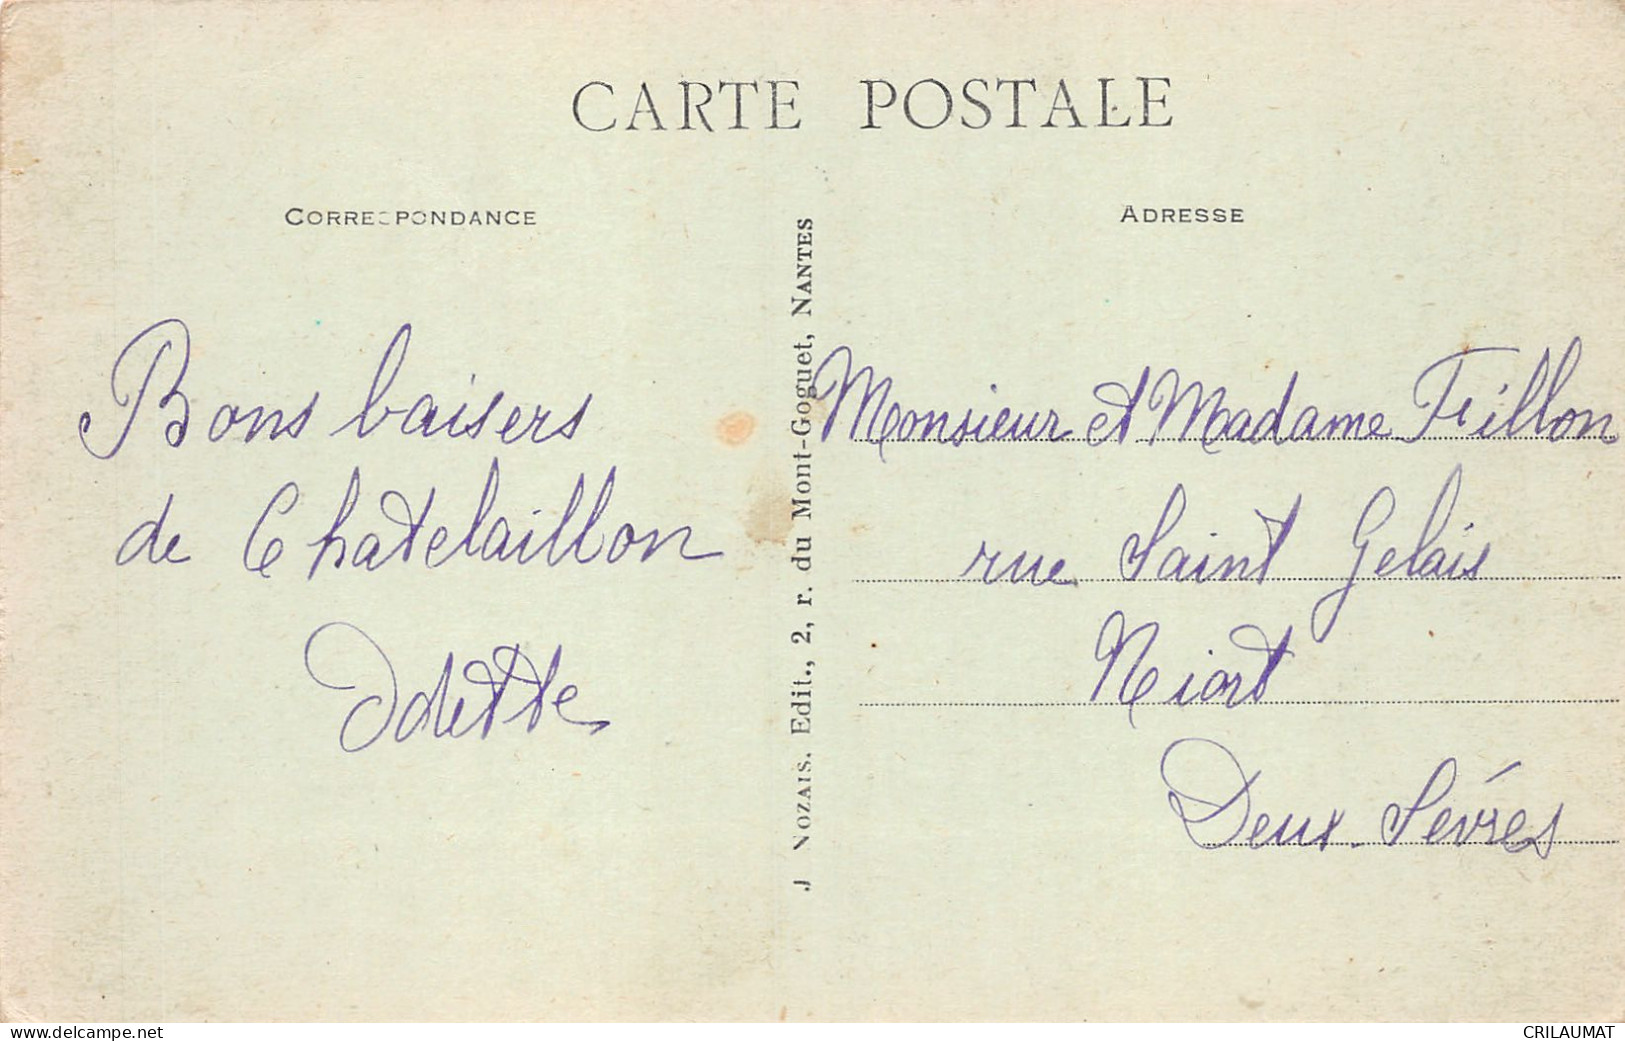 CARTE POSTALE
CORRESPONDANCE
Bons baisers
de Chatelaillon
Odette
J NOZAIS. Edit., 2, r. du Mont-Goguet, NANTES
ADRESSE
Monsieur et Madame Fillon
rue Saint Gelais
Niort
Deux-Sévres
www.delcampe.net
CRILAUMAT